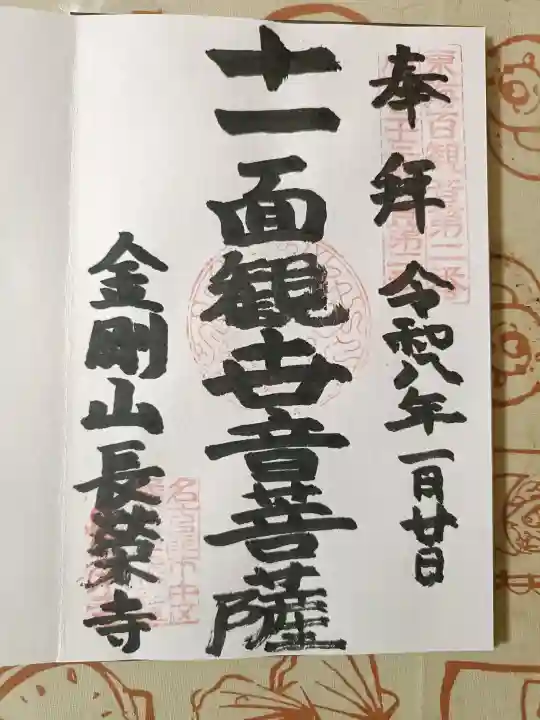 奉拜 令和八年一月廿日
十一面観世音菩薩
金剛山長榮寺
百観音第二番
名古屋市中区